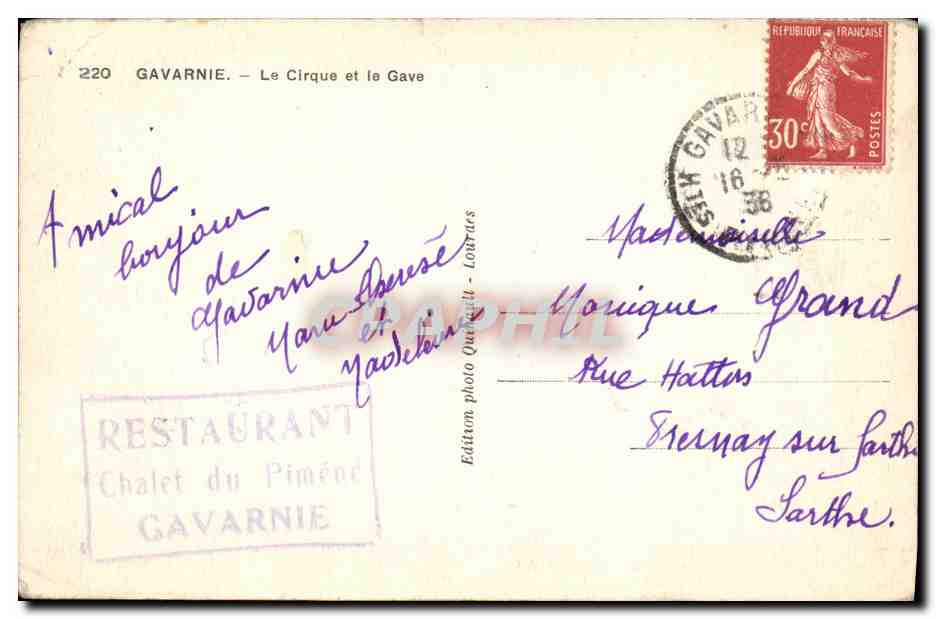 220 GAVARNIE. – Le Cirque et le Gave
REPUBLIQUE FRANÇAISE
30c
POSTES
GAVAR
12
16
38
Amical
bonjour
de
Gavarnie
Marie-Thérèse
et
Madeleine
Edition photo Quinault - Lourdes
CPAPHIL
Mademoiselle
Monique Grand
Rue Hattos
Fresnay sur Sarthe
Sarthe.
RESTAURANT
Chalet du Pimené
GAVARNIE